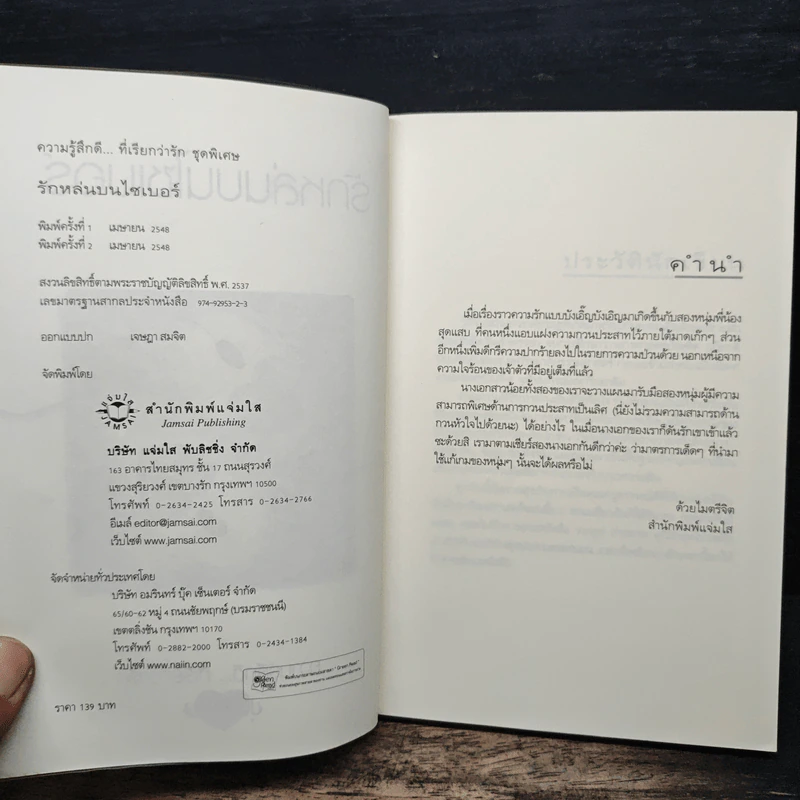 ความรู้สึกดี... ที่เรียกว่ารัก ชุดพิเศษ
รักหล่นบนไซเบอร์
พิมพ์ครั้งที่ 1 เมษายน 2548
พิมพ์ครั้งที่ 2 เมษายน 2548
สงวนลิขสิทธิ์ตามพระราชบัญญัติลิขสิทธิ์ พ.ศ. 2537
เลขมาตรฐานสากลประจำหนังสือ 974-92953-2-3
ออกแบบปก เจษฎา สมจิต
จัดพิมพ์โดย
แจ่มใส
JAMSAI
สำนักพิมพ์แจ่มใส
Jamsai Publishing
บริษัท แจ่มใส พับลิชชิ่ง จำกัด
163 อาคารไทยสมุทร ชั้น 17 ถนนสุรวงศ์
แขวงสุริยวงศ์ เขตบางรัก กรุงเทพฯ 10500
โทรศัพท์ 0-2634-2425 โทรสาร 0-2634-2766
อีเมล์ editor@jamsai.com
เว็บไซต์ www.jamsai.com
จัดจำหน่ายทั่วประเทศโดย
บริษัท อมรินทร์ บุ๊ค เซ็นเตอร์ จำกัด
65/60-62 หมู่ 4 ถนนชัยพฤกษ์ (บรมราชชนนี)
เขตตลิ่งชัน กรุงเทพฯ 10170
โทรศัพท์ 0-2882-2000 โทรสาร 0-2434-1384
เว็บไซต์ www.naiin.com
Green Read
ราคา 139 บาท
คำนำ
เมื่อเรื่องราวความรักแบบบังเอิ๊ญบังเอิญมาเกิดขึ้นกับสองหนุ่มพี่น้อง
สุดแสบ ที่คนหนึ่งแอบแฝงความกวนประสาทไว้ภายใต้มาดเก๊กๆ ส่วน
อีกหนึ่งเพิ่มดีกรีความปากร้ายลงไปในรายการความป่วนด้วย นอกเหนือจาก
ความใจร้อนของเจ้าตัวที่มีอยู่เต็มที่แล้ว
นางเอกสาวน้อยทั้งสองของเราจะวางแผนมารับมือสองหนุ่มผู้มีความ
สามารถพิเศษด้านการกวนประสาทเป็นเลิศ (นี่ยังไม่รวมความสามารถด้าน
กวนหัวใจไปด้วยนะ) ได้อย่างไร ในเมื่อนางเอกของเราก็ดันรักเขาเข้าแล้ว
ซะด้วยสิ เรามาตามเชียร์สองนางเอกกันดีกว่าค่ะ ว่ามาตรการเด็ดๆ ที่นำมา
ใช้แก้เกมของหนุ่มๆ นั้นจะได้ผลหรือไม่
ด้วยไมตรีจิต
สำนักพิมพ์แจ่มใส